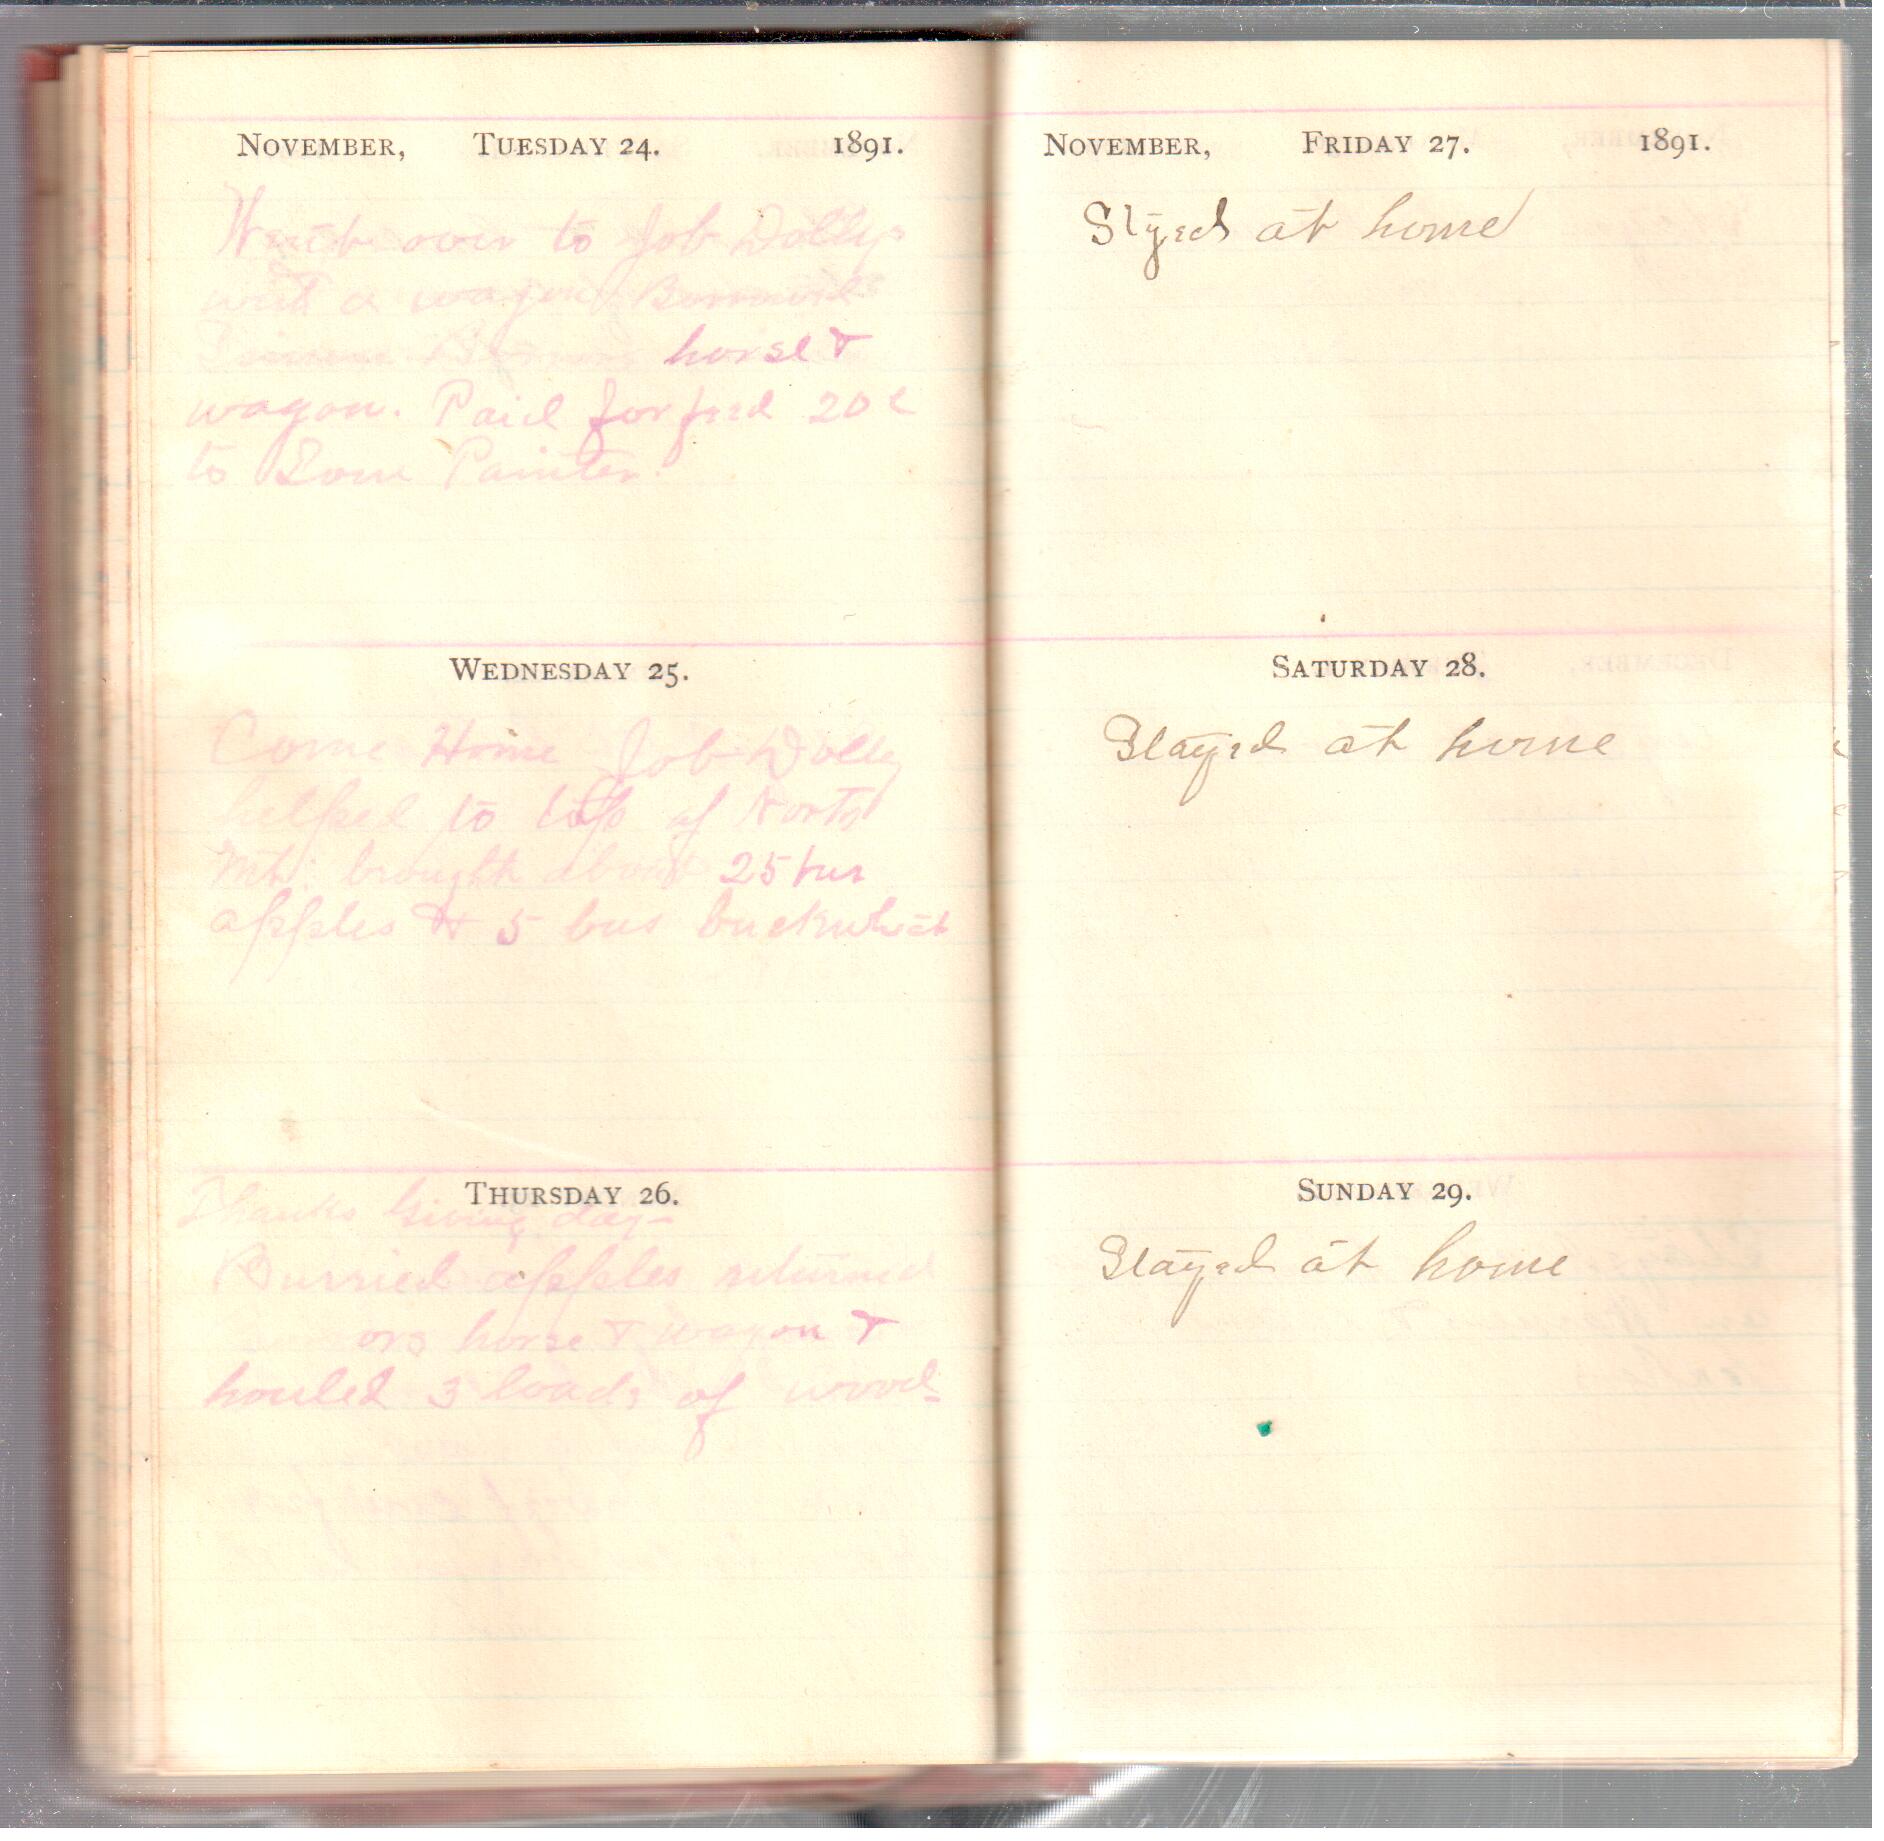 NOVEMBER, TUESDAY 24. 1891.
Went over to Job Dollys
with a wagon Borrowed
horse &
wagon. Paid for feed 20 c
to Painter.
WEDNESDAY 25.
Come Home Job Dolly
helped to top of North
Mt. brought about 25 bus
apples & 5 bus buckwheat
THURSDAY 26.
Thanks Giving day-
Burried apples returned
horse & wagon &
houled 3 loads of wood-
NOVEMBER, FRIDAY 27. 1891.
Styed at home
SATURDAY 28.
Stayed at home
SUNDAY 29.
Stayed at home